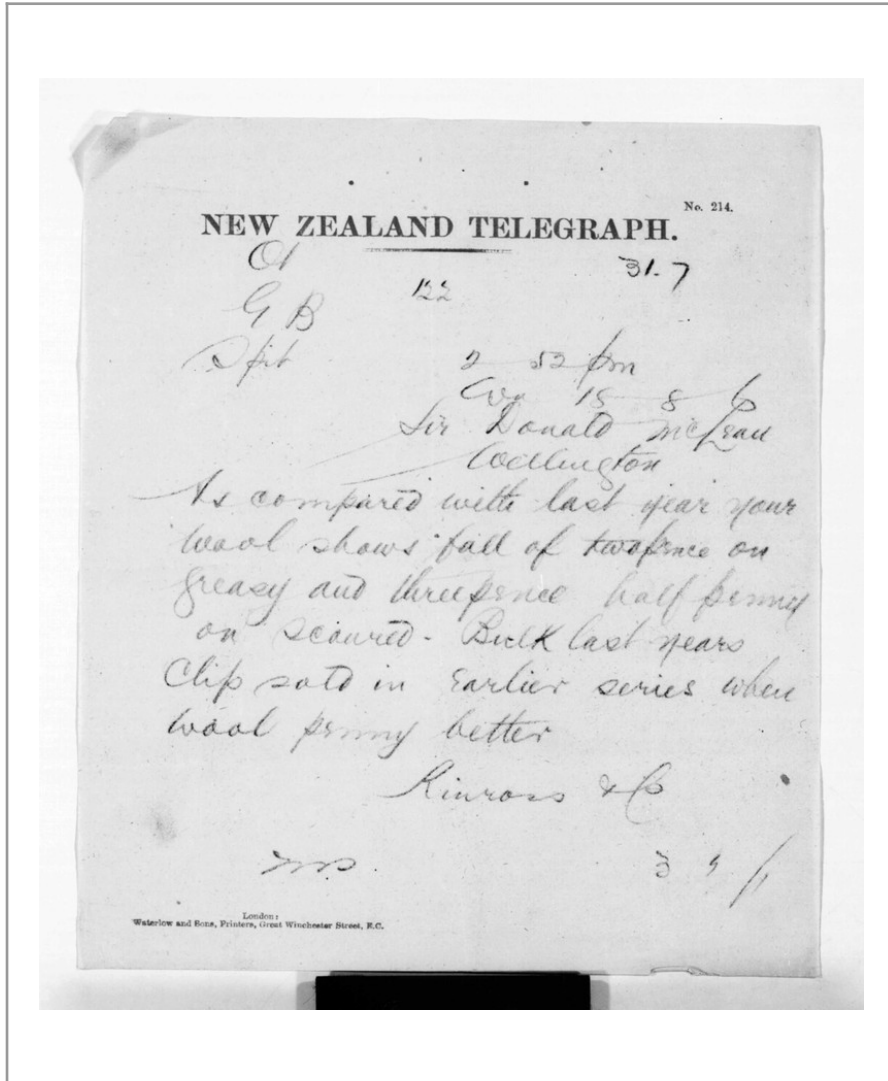 No. 214.
NEW ZEALAND TELEGRAPH.
31-7
122
G B
Spit 2 52 pm
18 8 6
Sir Donald McLean
Wellington
As compared with last year your
wool shows fall of twopence on
greasy and threepence half penny
on scoured - Bulk last years
Clip sold in Earlier series when
wool penny better
Kinross & Co
London:
Waterlow and Sons, Printers, Great Winchester Street, E.C.